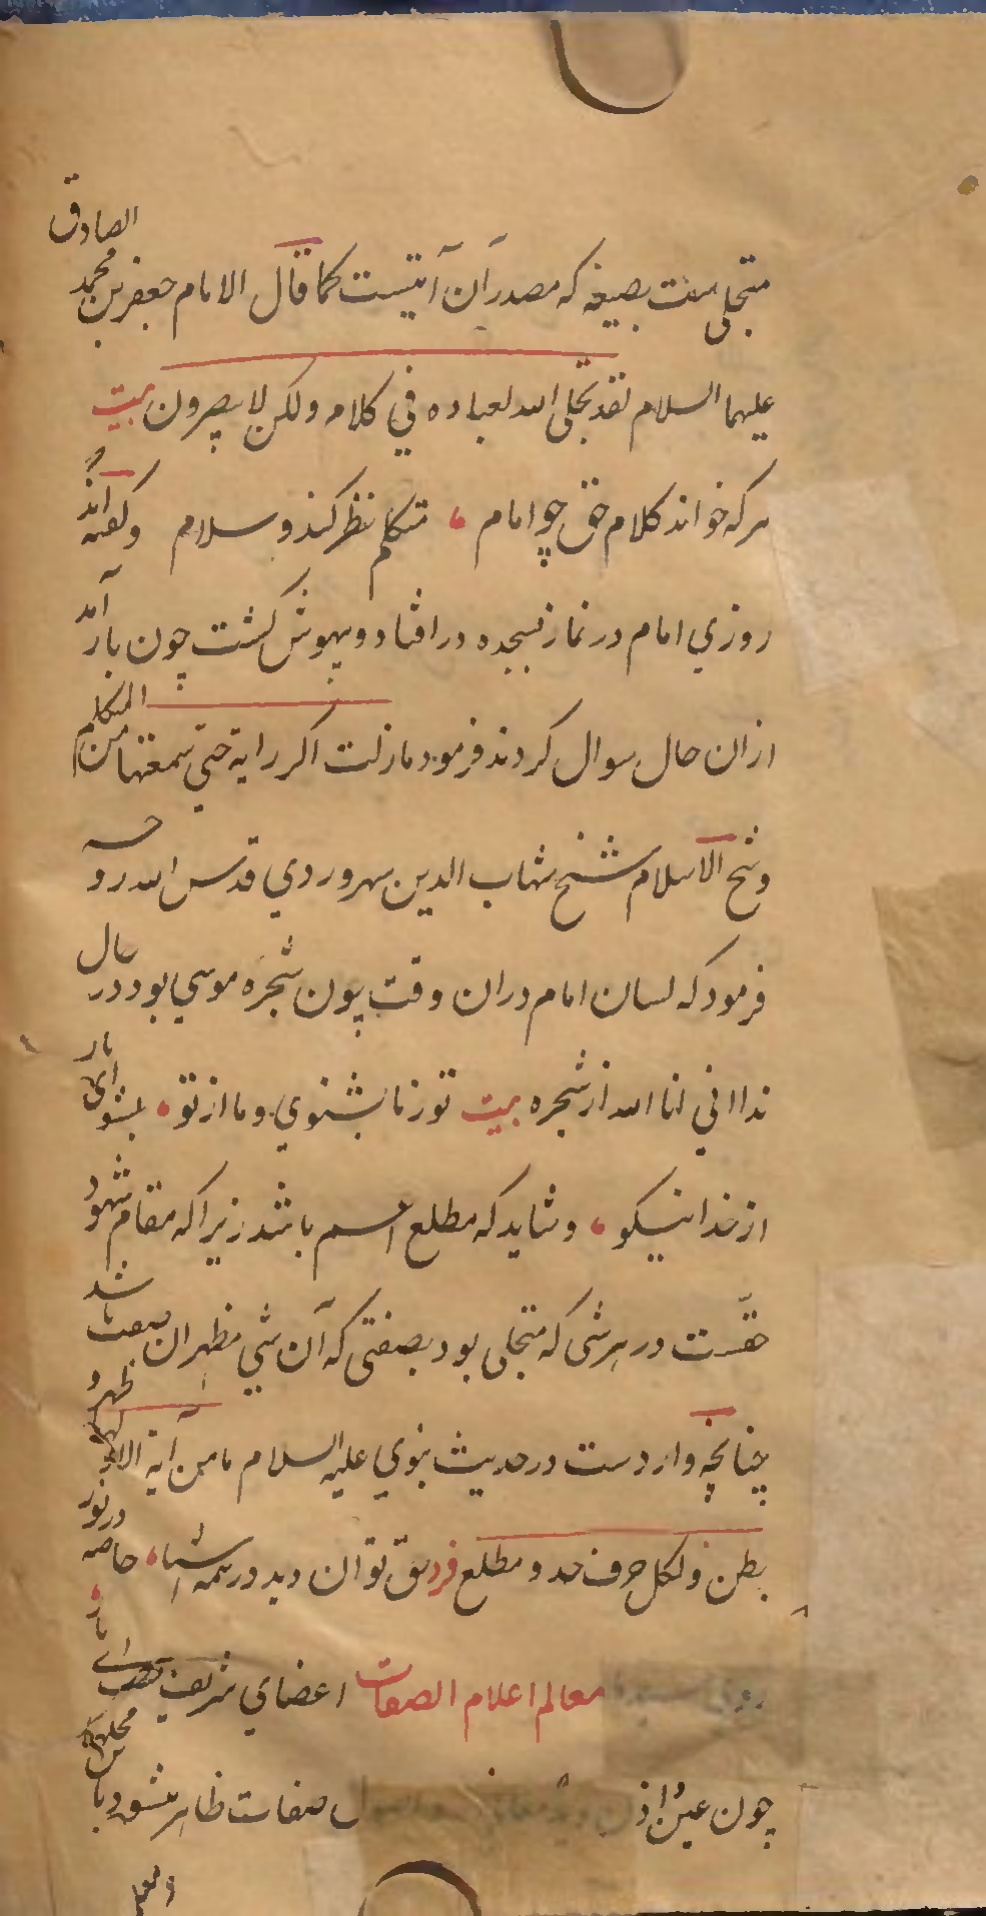 متجلی است بصیغه که مصدر آن آیتست کما قال الامام جعفر بن محمد الصادق
علیهما السلام لقد تجلی الله لعباده في کلامه ولکن لا یبصرون بیت
هرکه خواند کلام حق چو امام ، متکلم نظر کند و سلام وگفته اند
روزي امام در نماز بسجده در افتاد و بیهوش گشت چون باز آمد
ازان حال سوال کردند فرمود مازلت اکرر ایة حتي سمعتها من المتکلم
وشیخ الاسلام شیخ شهاب الدین سهروردي قدس الله روحه
فرمود که لسان امام دران وقت چون شجره موسي بود در حال
ندا اني انا الله از شجره بیت تو زما بشنوي و ما از تو ، بشنو اي یار
از خدا نیکو ، و شاید که مطلع اعم باشد زیرا که مقام شهود
حقست در هر شی که متجلی بود بصفتی که آن شي مظهر ان صفت باشد
چنانچه وارد ست در حدیث نبوي علیه السلام ما من آیة الا ولها ظهر و
بطن ولکل حرف حد و مطلع فرد حق توان دید در همه اشیا ، خاصه در نور
معالم اعلام الصفات اعضاي شریف
چون عین و اذن صفات ظاهر میشود با